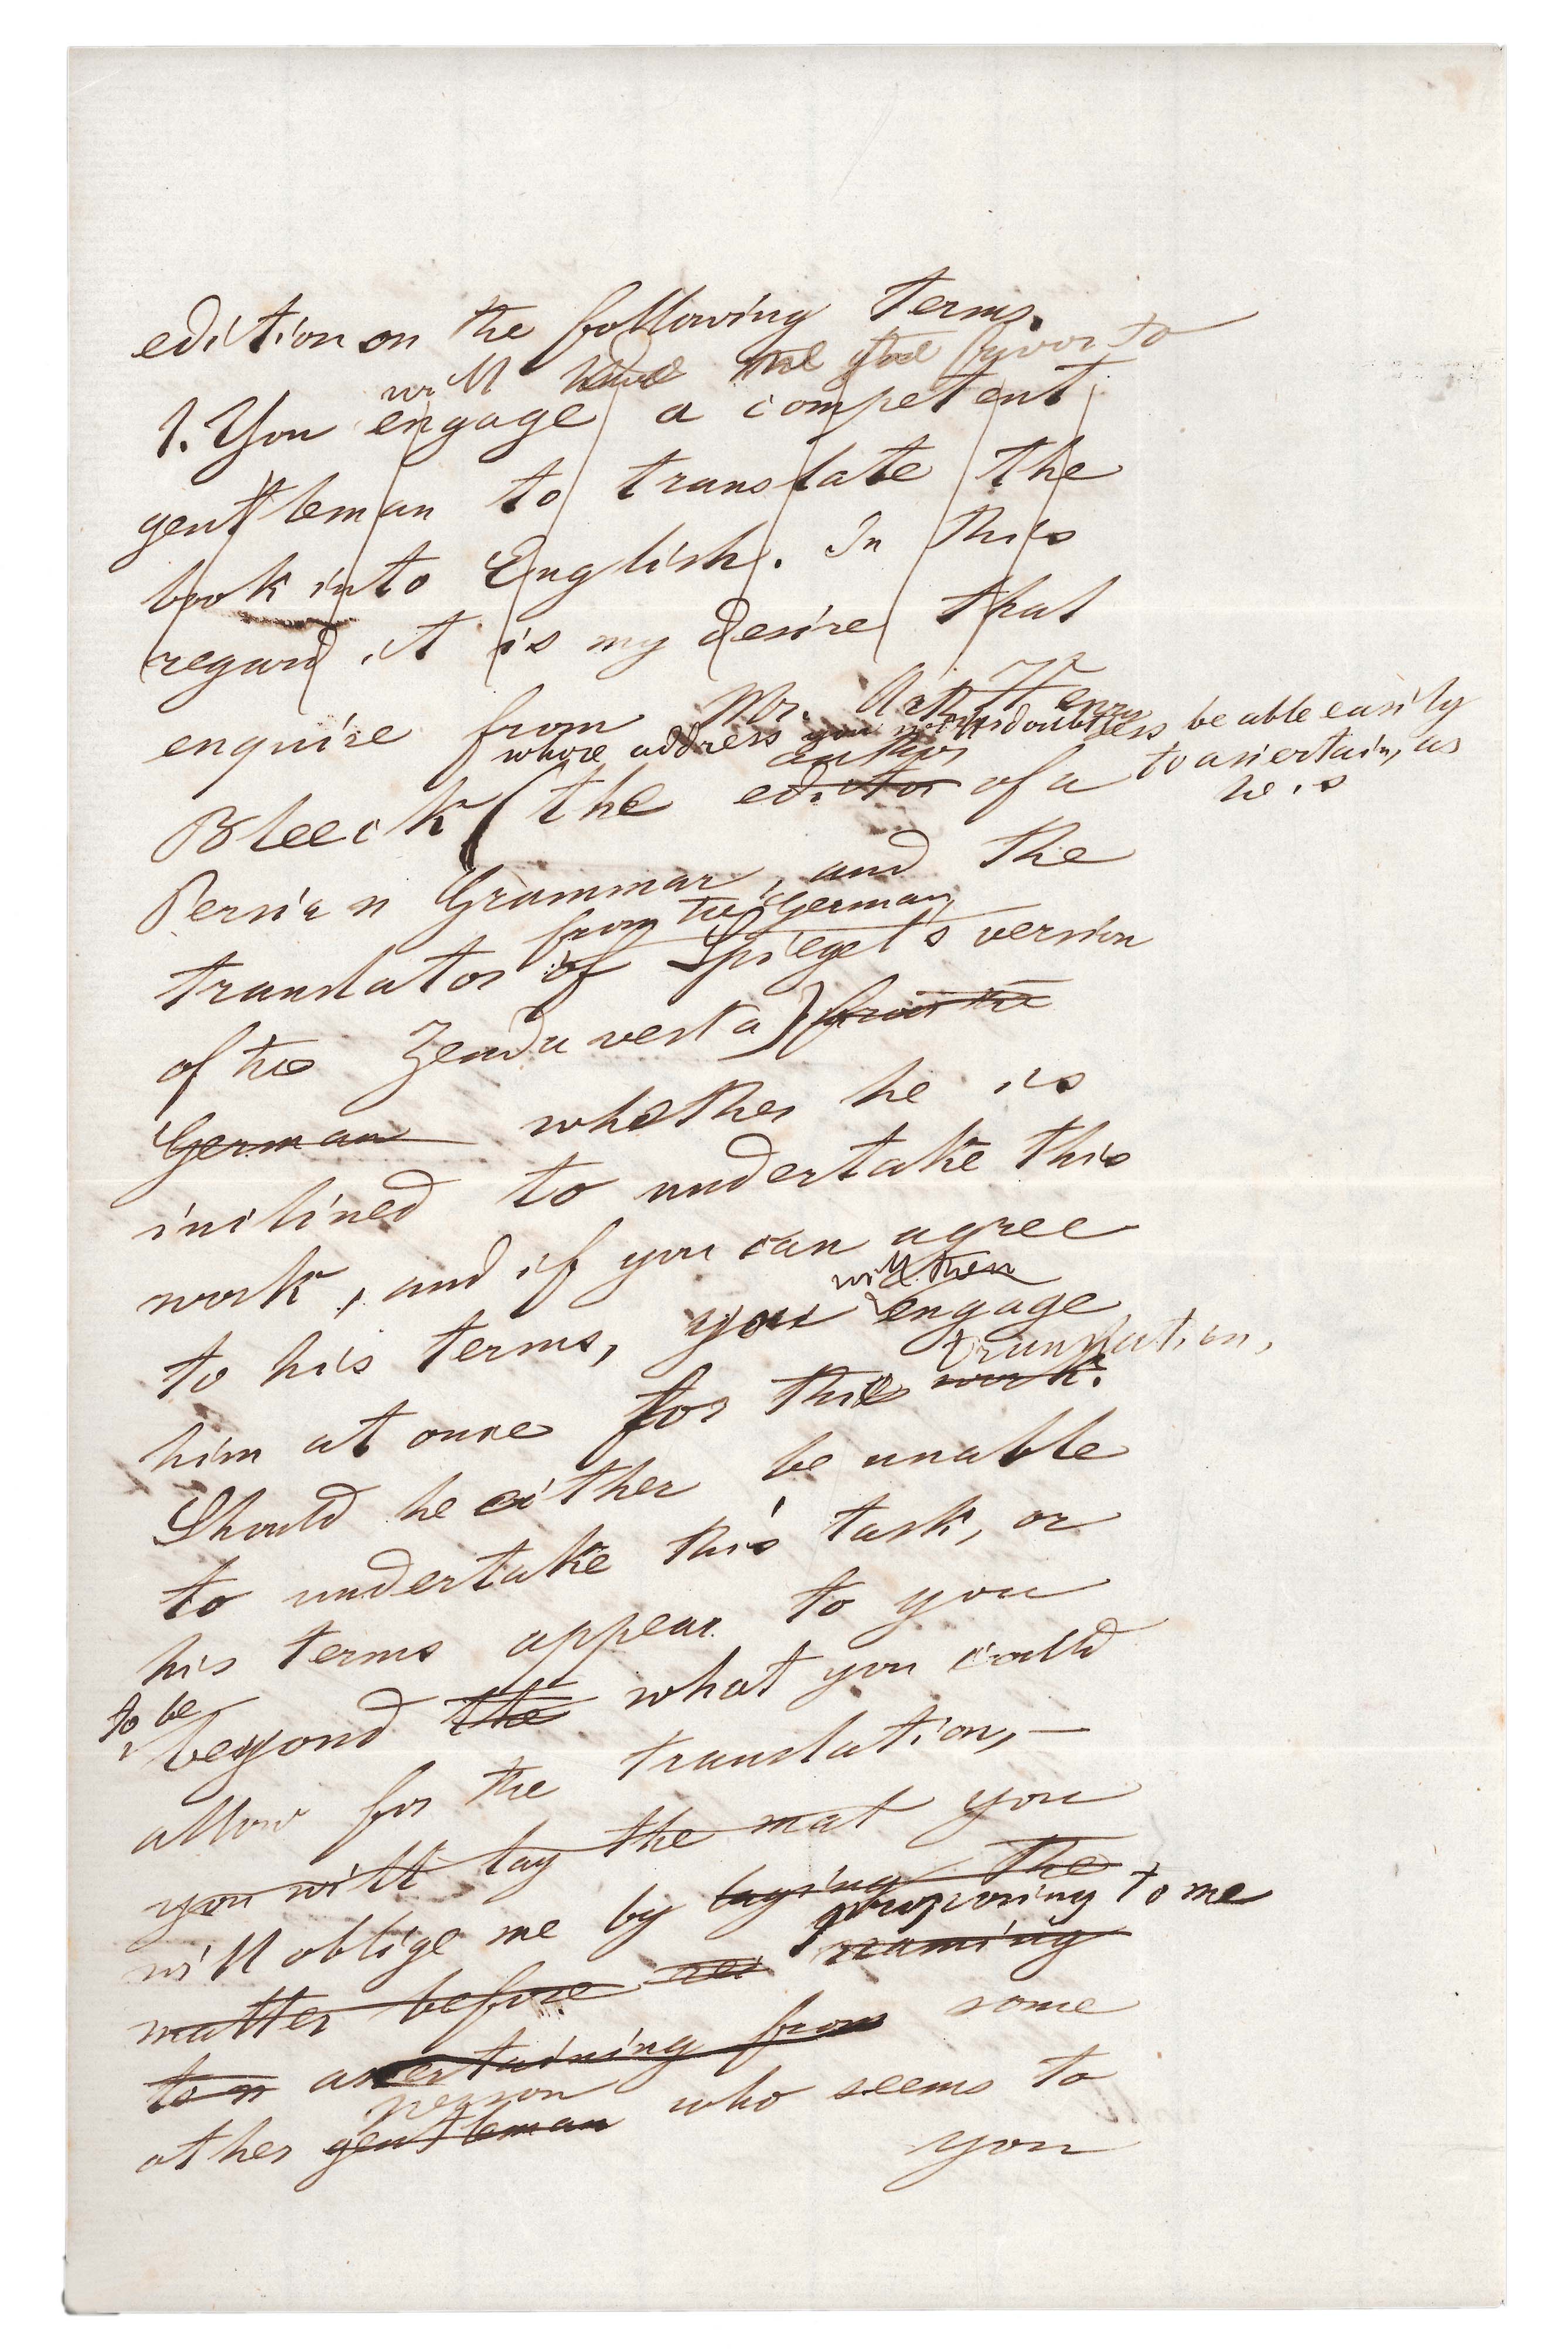 edition on the following terms.
will have me the favor to
1. You engage a competent
gentleman to translate the
book into English. In this
regard it is my desire that
enquire from Mr. Arth Henry
whose address you will doubtless be able easily
to ascertain, as
he is
author
Bleeck (the editor of a
Persian Grammar, and the
from the German
translator of Spiegel's version
of the Zendavesta) from the
German whether he is
inclined to undertake this
work, and if you can agree
will then
to his terms, you engage
translation,
him at once for this work.
Should he either be unable
to undertake this task, or
his terms appear to you
to be
beyond the what you could
allow for the translation, —
you will lay the mat you
will oblige me by laying the
proposing to me
matter before naming
to ascertaining from some
person
other gentleman who seems to
you